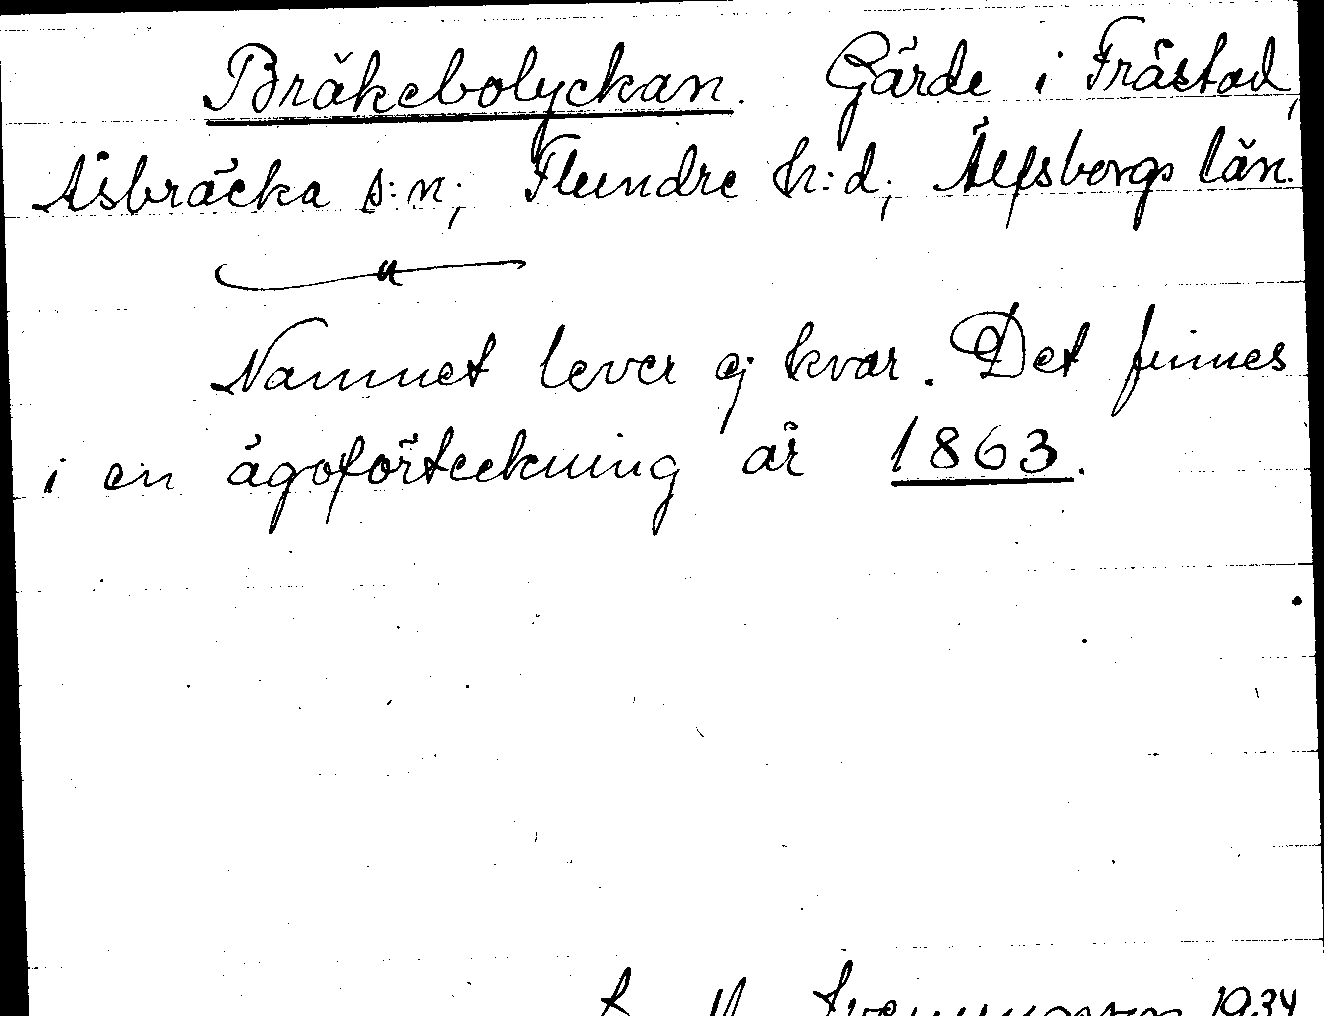 Bräkebolyckan. Gärde i Fråstad,
Åsbräcka s:n; Flundre h:d; Älfsborgs län.
Namnet lever ej kvar. Det finnes
i en ägoförteckning år 1863.
1934